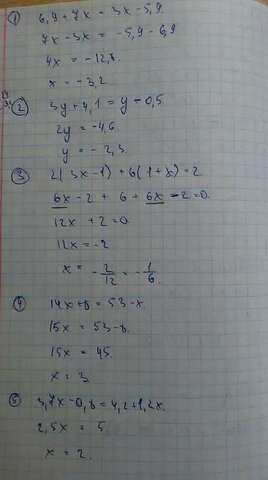 ① 6,9 + 7x = 3x - 5,9
7x - 3x = -5,9 - 6,9
4x = -12,8
x = -3,2
② 3y + 4,1 = y - 0,5
2y = -4,6
y = -2,3
③ 2(3x-1) + 6(1+x) = 2
6x - 2 + 6 + 6x - 2 = 0
12x + 2 = 0
12x = -2
x = -2/12 = -1/6
④ 14x + 8 = 53 - x
15x = 53 - 8.
15x = 45.
x = 3
⑤ 3,7x - 0,8 = 4,2 + 1,2x.
2,5x = 5.
x = 2.